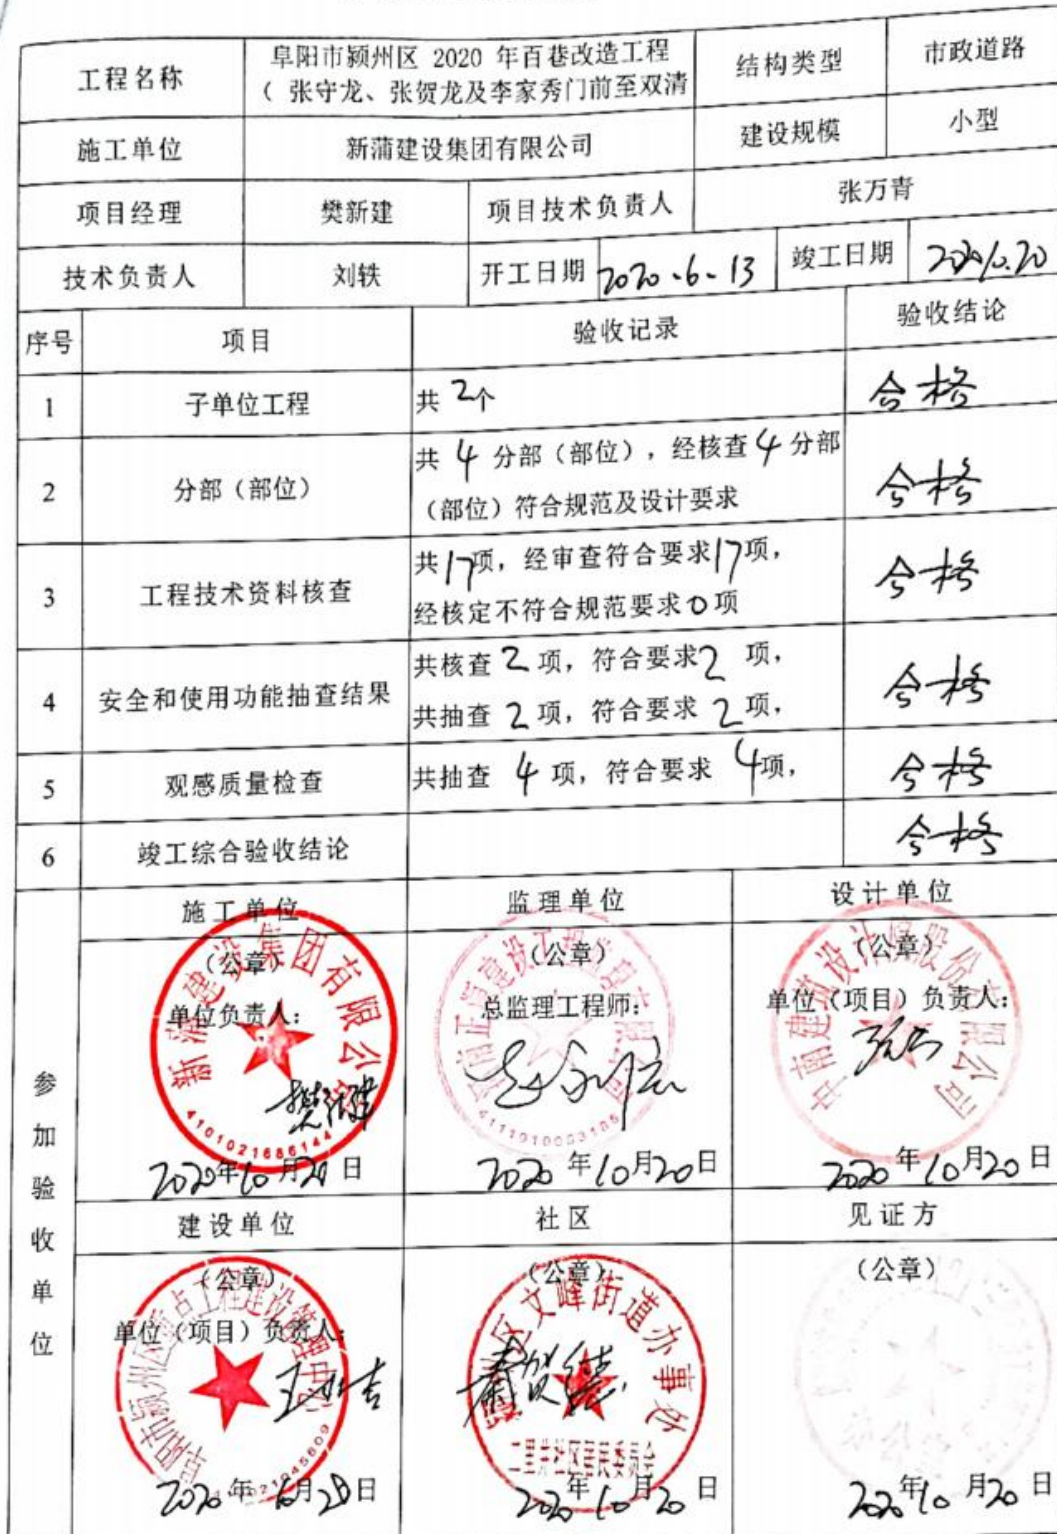 工程名称
阜阳市颍州区 2020 年百巷改造工程
( 张守龙、张贺龙及李家秀门前至双清
结构类型
市政道路
施工单位
新蒲建设集团有限公司
建设规模
小型
项目经理
樊新建
项目技术负责人
张万青
技术负责人
刘轶
开工日期
2020.6.13
竣工日期
序号
项目
验收记录
验收结论
1
子单位工程
共 2个
合格
2
分部（部位）
共 4 分部（部位），经核查 4 分部
（部位）符合规范及设计要求
合格
3
工程技术资料核查
共17项，经审查符合要求17项，
经核定不符合规范要求0项
合格
4
安全和使用功能抽查结果
共核查 2 项，符合要求2 项，
共抽查 2 项，符合要求 2 项，
合格
5
观感质量检查
共抽查 4 项，符合要求 4项，
合格
6
竣工综合验收结论
合格
参加验收单位
施工单位
（公章）
单位负责人：
新蒲建设集团有限公司
4101021686144
樊新建
2020年10月20日
监理单位
（公章）
总监理工程师：
2020年10月20日
设计单位
（公章）
单位（项目）负责人：
2020年10月20日
建设单位
（公章）
单位（项目）负责人：
阜阳市颍州区重点工程建设管理中心
2020年10月20日
社区
（公章）
区文峰街道办事处
二里井社区居民委员会
2020年10月20日
见证方
（公章）
2020年10月20日